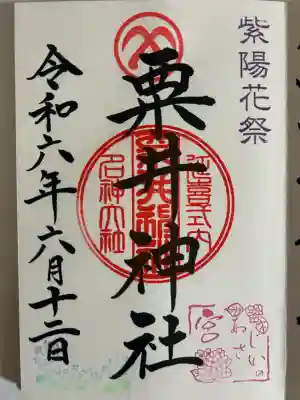 紫陽花祭
粟井神社
延喜式内
名神大社
令和六年六月十二日
あじさいの
宮